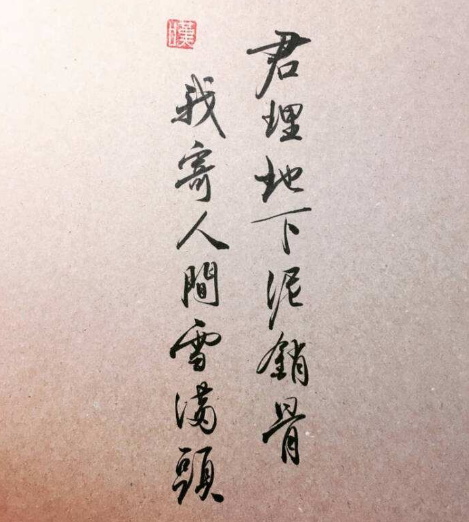 君理地下泥銷骨
我寄人間雪滿頭